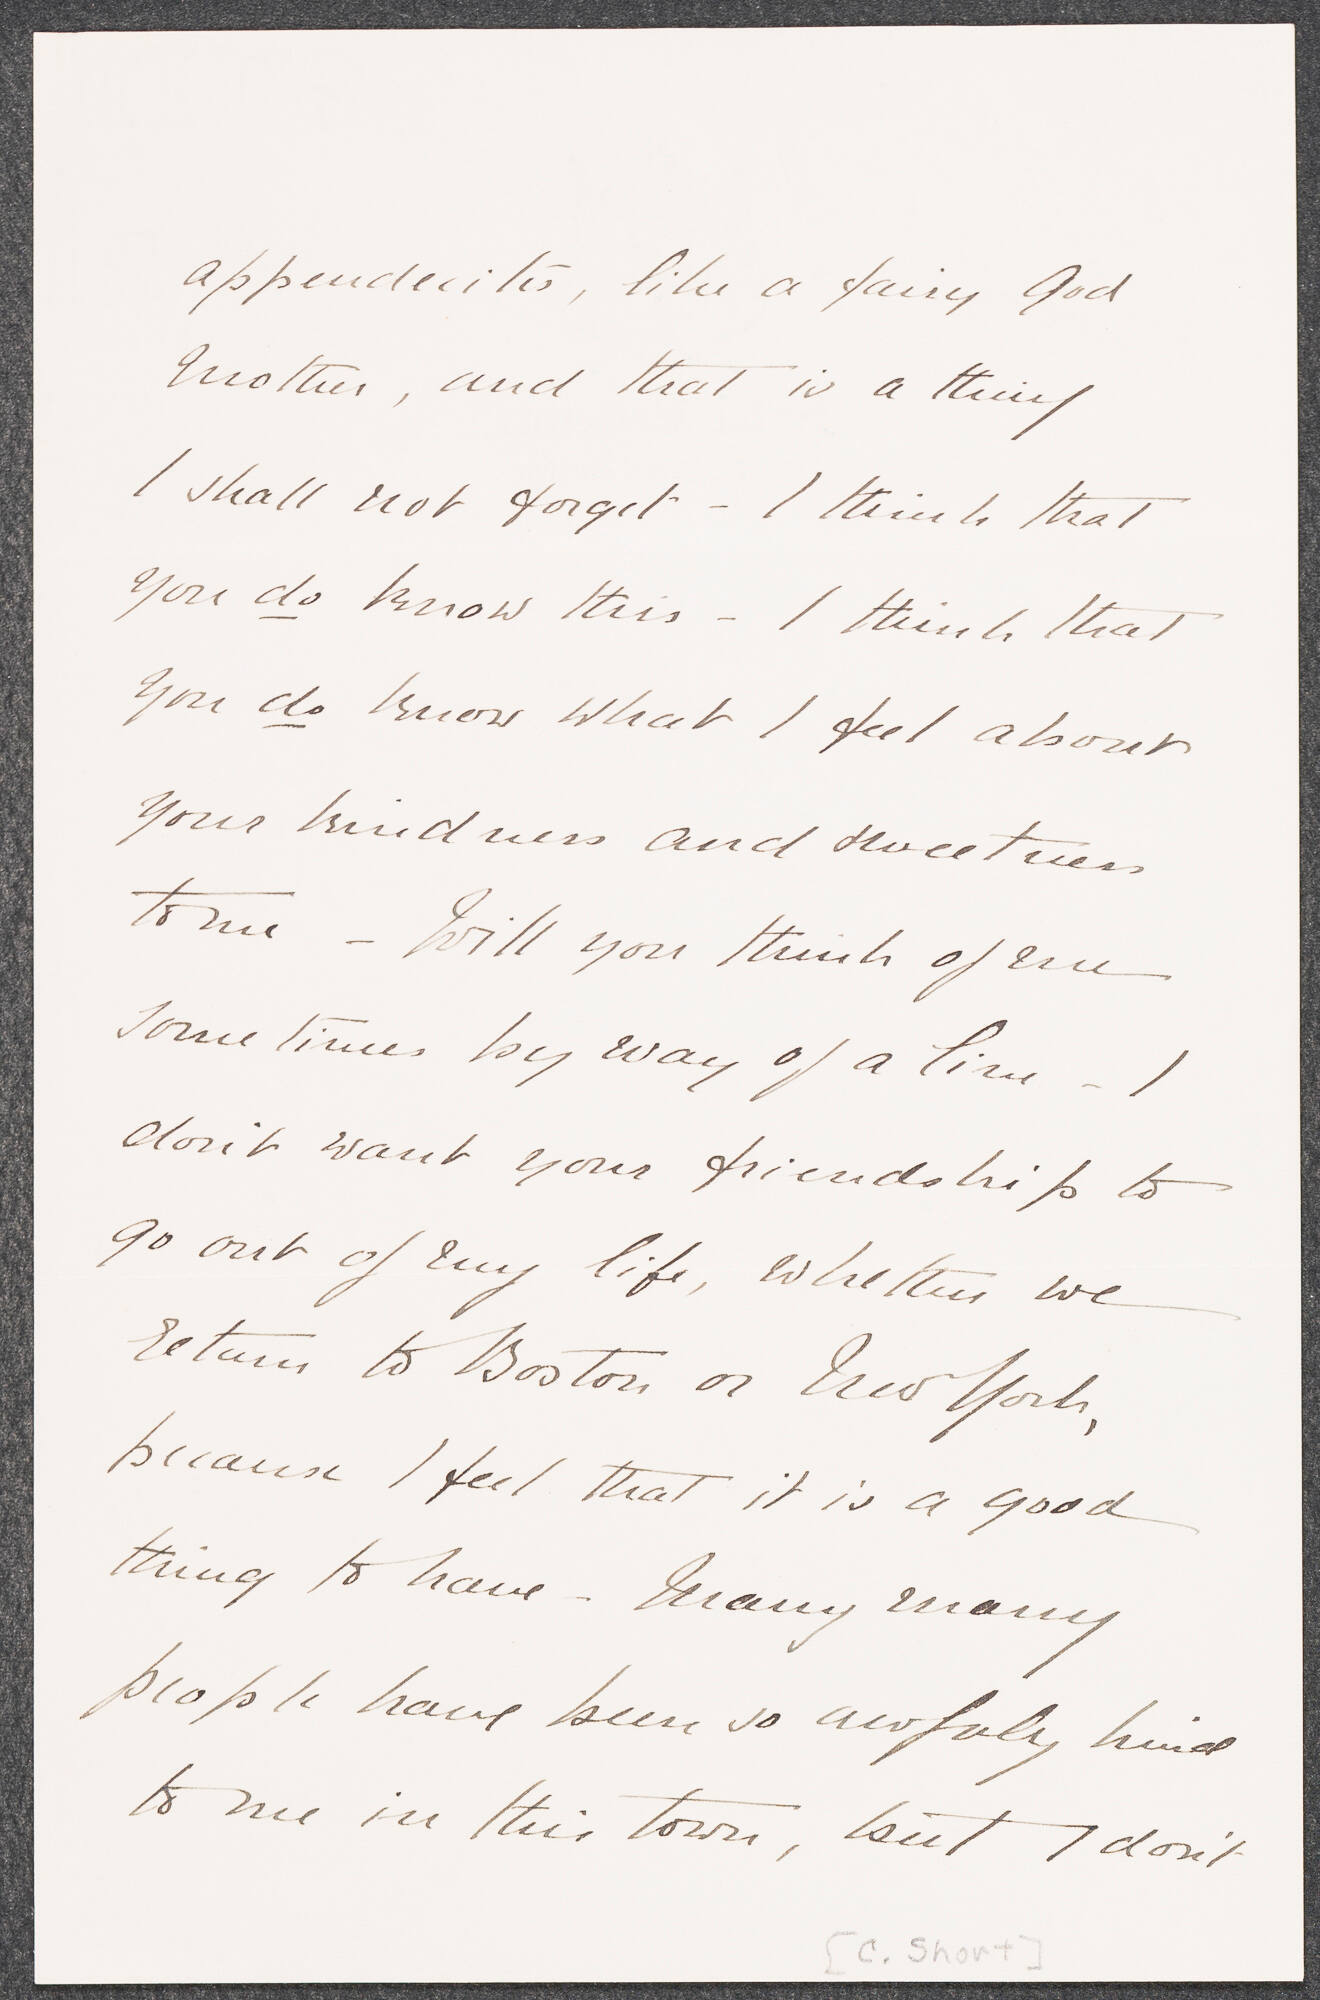 appendecites, like a fairy God
Mother, and that is a thing
I shall not forget - I think that
you do know this - I think that
you do know what I feel about
your kindness and sweetness
to me - Will you think of me
sometimes by way of a line - I
don't want your friendship to
go out of my life, whether we
return to Boston or New York,
because I feel that it is a good
thing to have - Many many
people have been so awfuly kind
to me in this town, but I don't
[C. Short]